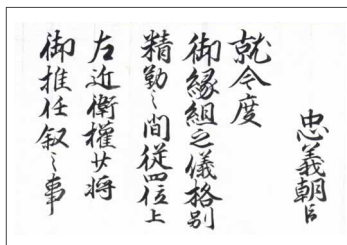 忠義朝臣
就今度
御縁組之儀格別
精勤之間従四位上
左近衛權少将
御推任叙之事